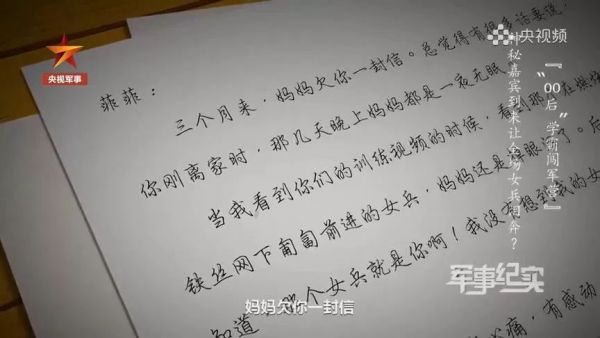 央视军事
央视频
『"00后"学霸闯军营』
神秘嘉宾到来让全场女兵狂奔？
菲菲：
三个月来，妈妈欠你一封信。总觉得有很多话要说，
你刚离家时，那几天晚上妈妈都是一夜无眠
当我看到你们的训练视频的时候，看到那
在燃烧
铁丝网下匍匐前进的女兵，妈妈还是
眼了。后
知道
个女兵就是你啊！我没有想到我的女
痛，有感动
军事纪实
妈妈欠你一封信